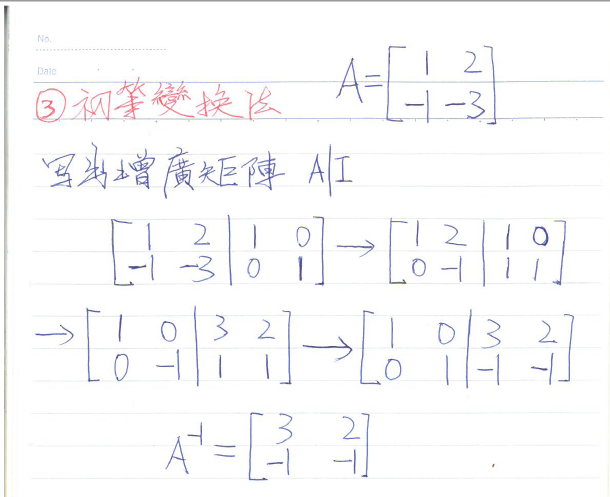 No.
Date
③初等變換法
A=[1 2
-1 -3]
写出增廣矩陣 A|I
[1 2 | 1 0
-1 -3 | 0 1] → [1 2 | 1 0
0 -1 | 1 1]
→ [1 0 | 3 2
0 -1 | 1 1] → [1 0 | 3 2
0 1 | -1 -1]
A⁻¹=[3 2
-1 -1]